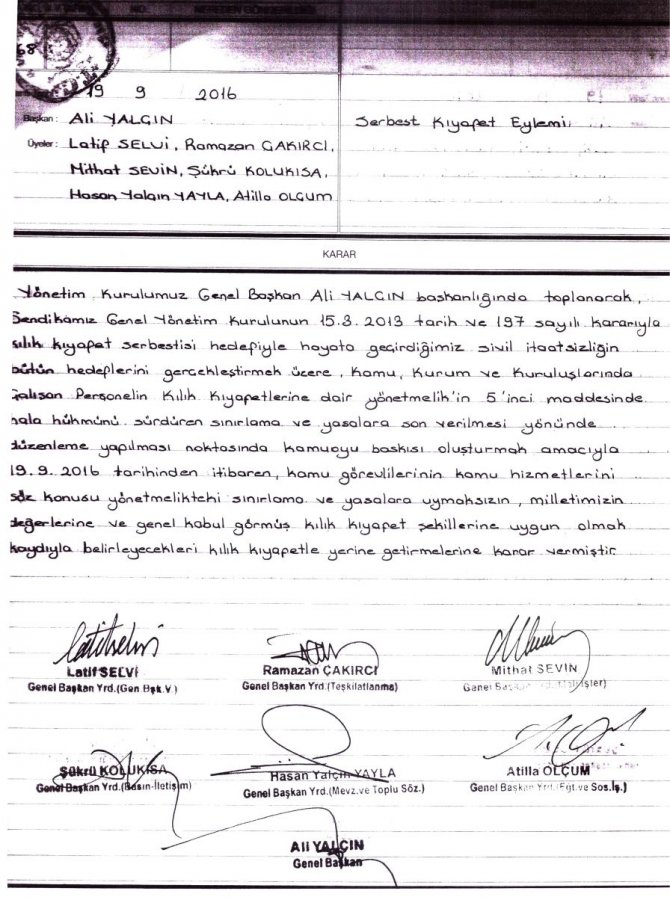 NO. NEREDEN GÖNDERİLDİĞİ
68
19 9 2016
Başkan: Ali YALÇIN
Serbest Kıyafet Eylemi
Üyeler: Latif SELVİ, Ramazan ÇAKIRCI,
Mithat SEVİN, Şükrü KOLUKISA,
Hasan Yalçın YAYLA, Atilla OLÇUM
KARAR
Yönetim Kurulumuz Genel Başkan Ali YALÇIN başkanlığında toplanarak,
Sendikamız Genel Yönetim Kurulunun 15.3.2013 tarih ve 197 sayılı kararıyla
kılık kıyafet serbestisi hedefiyle hayata geçirdiğimiz sivil itaatsizliğin
bütün hedeflerini gerçekleştirmek üzere, Kamu, Kurum ve Kuruluşlarında
Çalışan Personelin Kılık Kıyafetlerine dair yönetmelik'in 5'inci maddesinde
hala hükmünü sürdüren sınırlama ve yasalara son verilmesi yönünde
düzenleme yapılması noktasında kamuoyu baskısı oluşturmak amacıyla
19.9.2016 tarihinden itibaren, kamu görevlilerinin kamu hizmetlerini
söz konusu yönetmelikteki sınırlama ve yasalara uymaksızın, milletimizin
değerlerine ve genel kabul görmüş kılık kıyafet şekillerine uygun olmak
kaydıyla belirleyecekleri kılık kıyafetle yerine getirmelerine karar vermiştir.
Latif SELVİ
Genel Başkan Yrd.(Gen.Bşk.V.)
Ramazan ÇAKIRCI
Genel Başkan Yrd.(Teşkilatlanma)
Mithat SEVİN
Genel Başkan Yrd.(Mali İşler)
Şükrü KOLUKISA
Genel Başkan Yrd.(Basın-İletişim)
Hasan Yalçın YAYLA
Genel Başkan Yrd.(Mevz.ve Toplu Söz.)
Atilla OLÇUM
Genel Başkan Yrd.(Eğt.ve Sos.İş.)
Ali YALÇIN
Genel Başkan